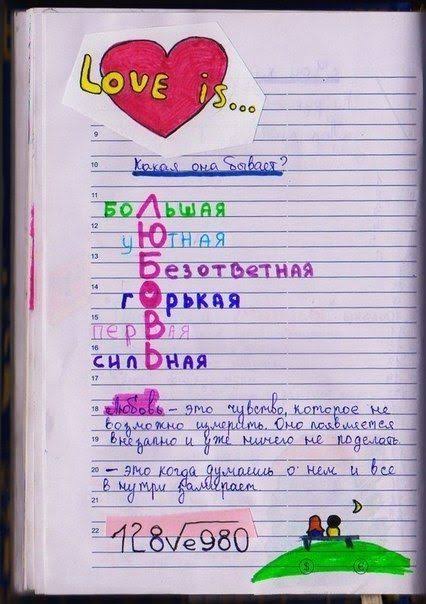 LOVE is...
9
10 Какая она бывает?
11 БОЛЬШАЯ
12 уЮТНАЯ
13 Безответная
14 гОрькая
15 перВая
16 сильная
17
18 Любовь – это чувство, которое не
возможно измерить. Оно появляется
19 внезапно и уже ничего не поделать.
20 – это когда думаешь о нем и все
в нутри замирает
21
22 128√e980